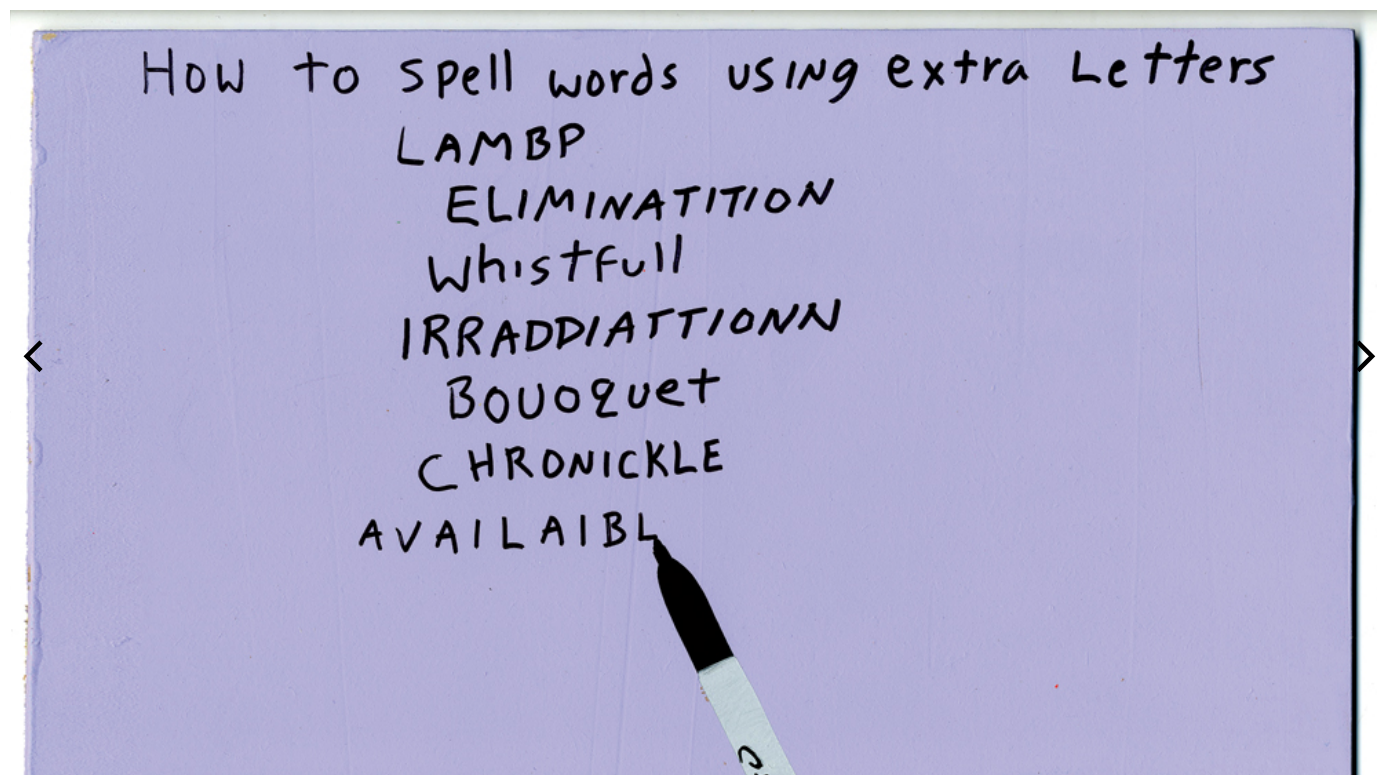 How to spell words using extra Letters
LAMBP
ELIMINATITION
Whistfull
IRRADDIATTIONN
Bouoquet
CHRONICKLE
AVAILAIBL